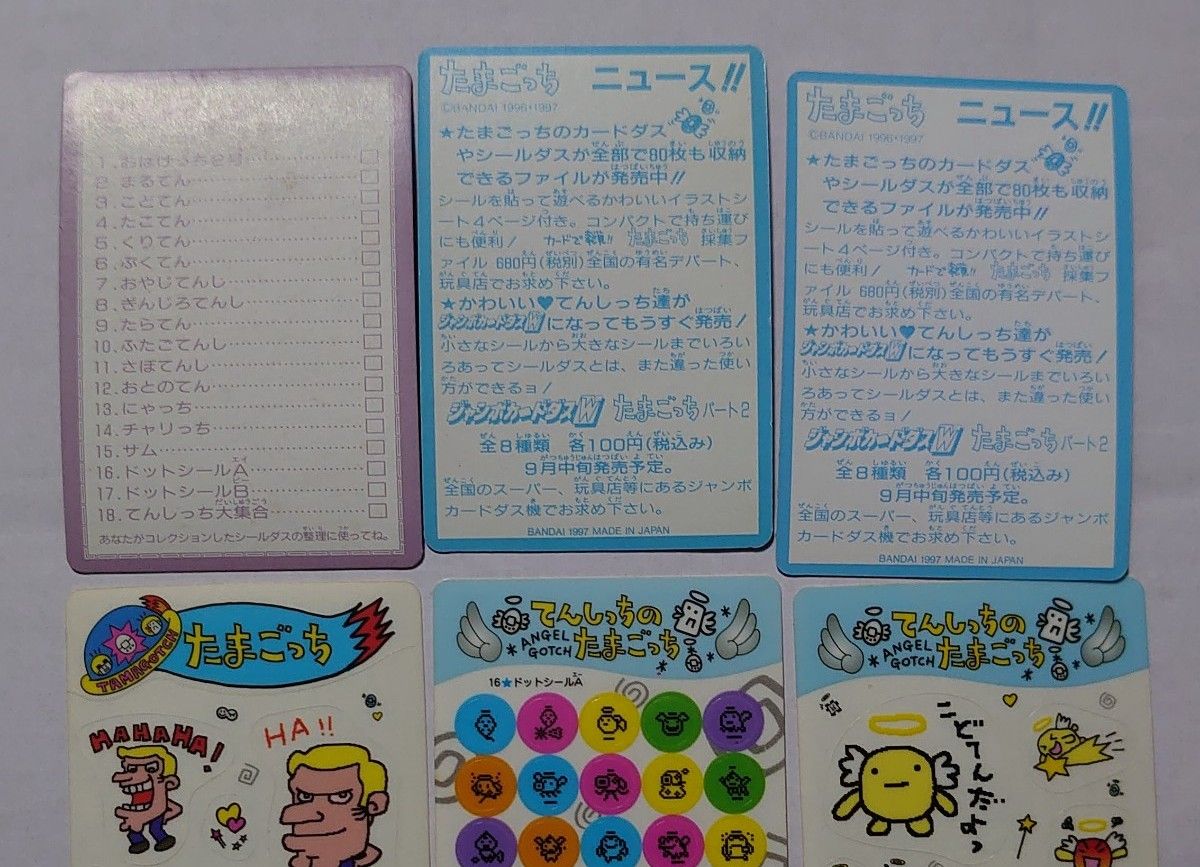 1.おばけっち2号
2.まるてん
3.こどてん
4.たこてん
5.くりてん
6.ぷくてん
7.おやじてんし
8.ぎんじろてんし
9.たらてん
10.ふたごてんし
11.さぼてんし
12.おとのてん
13.にゃっち
14.チャリっち
15.サム
16.ドットシールA
17.ドットシールB
18.てんしっち大集合
あなたがコレクションしたシールダスの整理に使ってね。
たまごっち ニュース!!
©BANDAI 1996・1997
★たまごっちのカードダス
やシールダスが全部で80枚も収納
できるファイルが発売中!!
シールを貼って遊べるかわいいイラストシ
ート4ページ付き。コンパクトで持ち運び
にも便利! カードで発見!! たまごっち 採集フ
ァイル 680円(税別)全国の有名デパート、
玩具店でお求め下さい。
★かわいい♥てんしっち達が
ジャンボカードダスWになってもうすぐ発売!
小さなシールから大きなシールまでいろい
ろあってシールダスとは、また違った使い
方ができるヨ!
ジャンボカードダスW たまごっちパート2
全8種類 各100円(税込み)
9月中旬発売予定。
全国のスーパー、玩具店等にあるジャンボ
カードダス機でお求め下さい。
BANDAI 1997 MADE IN JAPAN
たまごっち ニュース!!
©BANDAI 1996・1997
★たまごっちのカードダス
やシールダスが全部で80枚も収納
できるファイルが発売中!!
シールを貼って遊べるかわいいイラストシ
ート4ページ付き。コンパクトで持ち運び
にも便利! カードで発見!! たまごっち 採集フ
ァイル 680円(税別)全国の有名デパート、
玩具店でお求め下さい。
★かわいい♥てんしっち達が
ジャンボカードダスWになってもうすぐ発売!
小さなシールから大きなシールまでいろい
ろあってシールダスとは、また違った使い
方ができるヨ!
ジャンボカードダスW たまごっちパート2
全8種類 各100円(税込み)
9月中旬発売予定。
全国のスーパー、玩具店等にあるジャンボ
カードダス機でお求め下さい。
BANDAI 1997 MADE IN JAPAN
TAMAGOTCH
たまごっち
HAHAHA!
HA!!
てんしっちの
ANGEL
GOTCH
たまごっち
16★ドットシールA
てんしっちの
ANGEL
GOTCH
たまごっち
こどてんだよっ